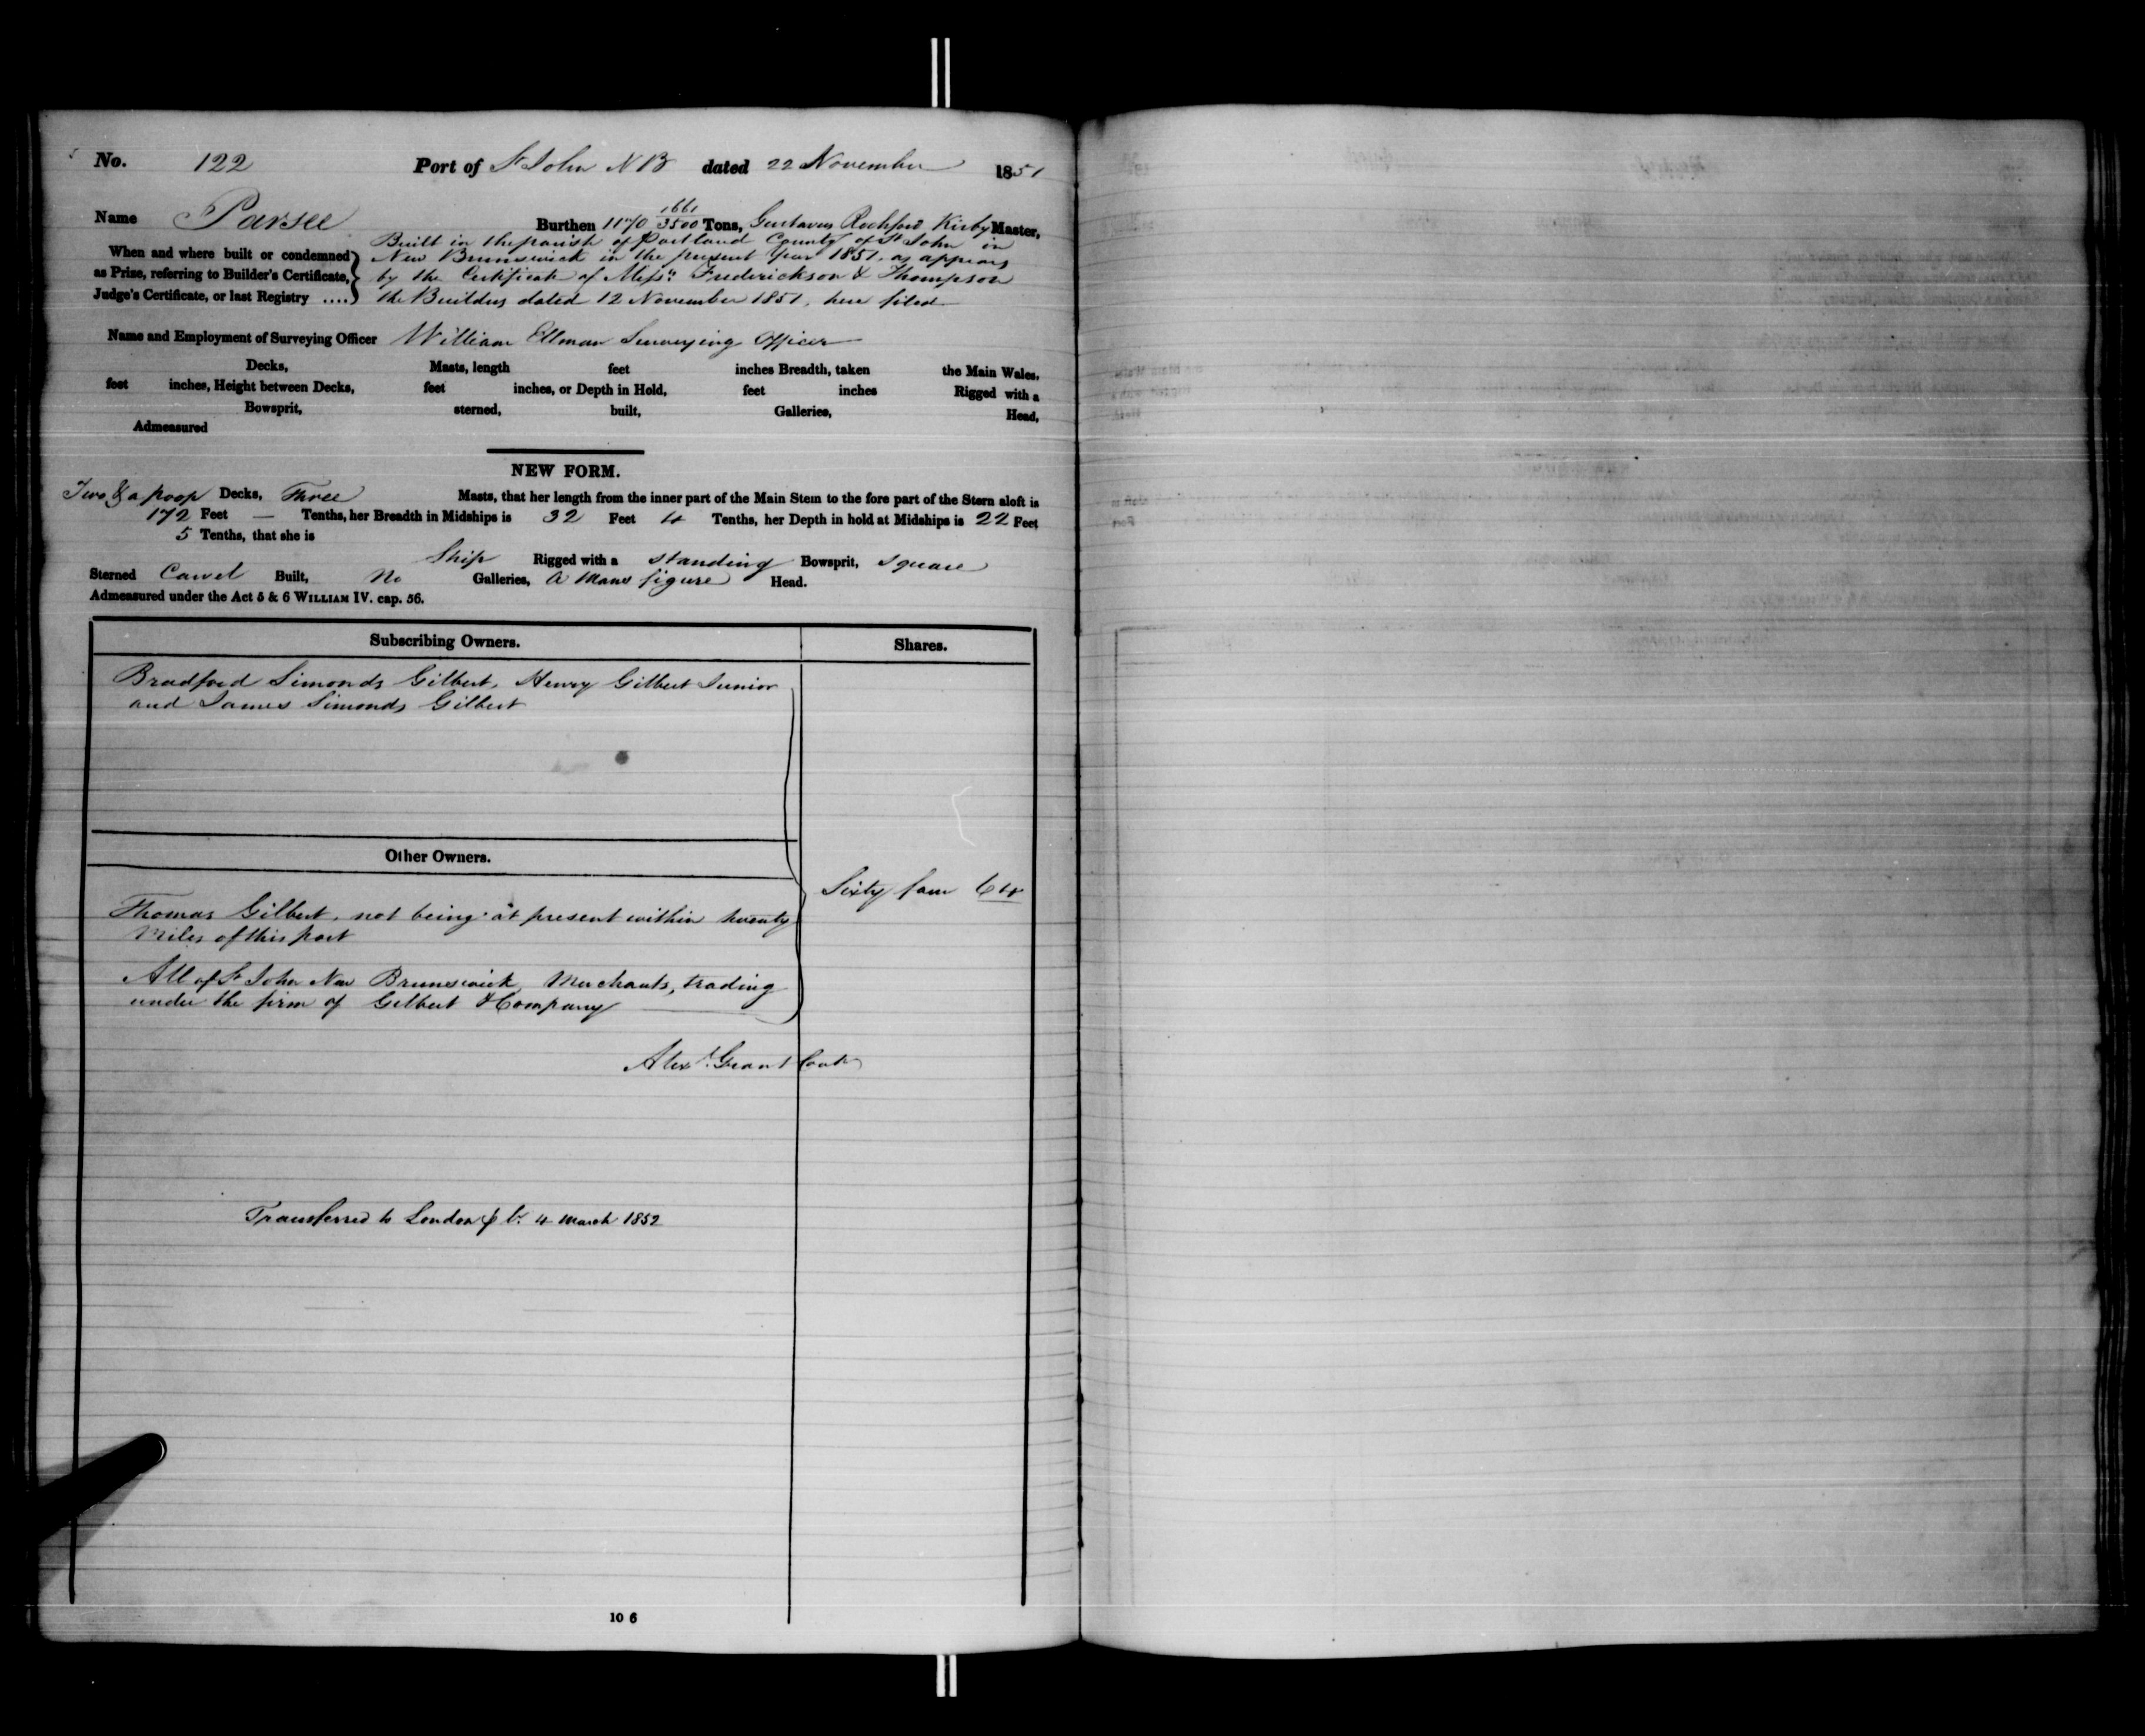 No. 122 Port of St John N B dated 22 November 1851
Name Parsee Burthen 1170 1661/3500 Tons, Gustavus Rochford Kirby Master,
When and where built or condemned as Prise, referring to Builder's Certificate, Judge's Certificate, or last Registry ....
Built in the parish of Portland County of St John in
New Brunswick in the present Year 1851, as appears
by the Certificate of Messrs Frederickson & Thompson
the Builders dated 12 November 1851, here filed
Name and Employment of Surveying Officer William Ellman Surveying Officer
Decks, Masts, length feet inches Breadth, taken the Main Wales,
feet inches, Height between Decks, feet inches, or Depth in Hold, feet inches Rigged with a
Bowsprit, sterned, built, Galleries, Head,
Admeasured
NEW FORM.
Two & a poop Decks, Three Masts, that her length from the inner part of the Main Stem to the fore part of the Stern aloft is
172 Feet — Tenths, her Breadth in Midships is 32 Feet 4 Tenths, her Depth in hold at Midships is 22 Feet
5 Tenths, that she is
Ship Rigged with a standing Bowsprit, square
Sterned Carvel Built, No Galleries, A Mans figure Head.
Admeasured under the Act 5 & 6 WILLIAM IV. cap. 56.
Subscribing Owners. Shares.
Bradford Simonds Gilbert, Henry Gilbert Junior
and James Simonds Gilbert
Other Owners.
Sixty four 64
Thomas Gilbert, not being at present within twenty
Miles of this port
All of St John New Brunswick, Merchants, trading
under the firm of Gilbert & Company
Alexr. Grant Contr
Transferred to London 4 March 1852
10 6